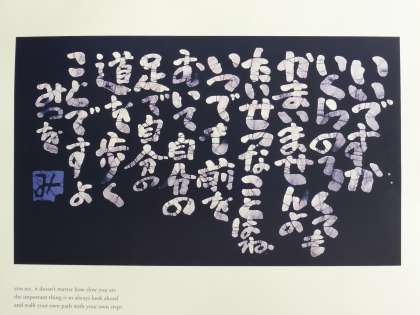 いいですか
いくらのろくても
かまいませんよ
たいせつなことはね
いつでも前を
むいて自分の
足で自分の
道を歩く
ことですよ
みつを
you see, it doesn't matter how slow you are
the important thing is to always look ahead
and walk your own path with your own steps